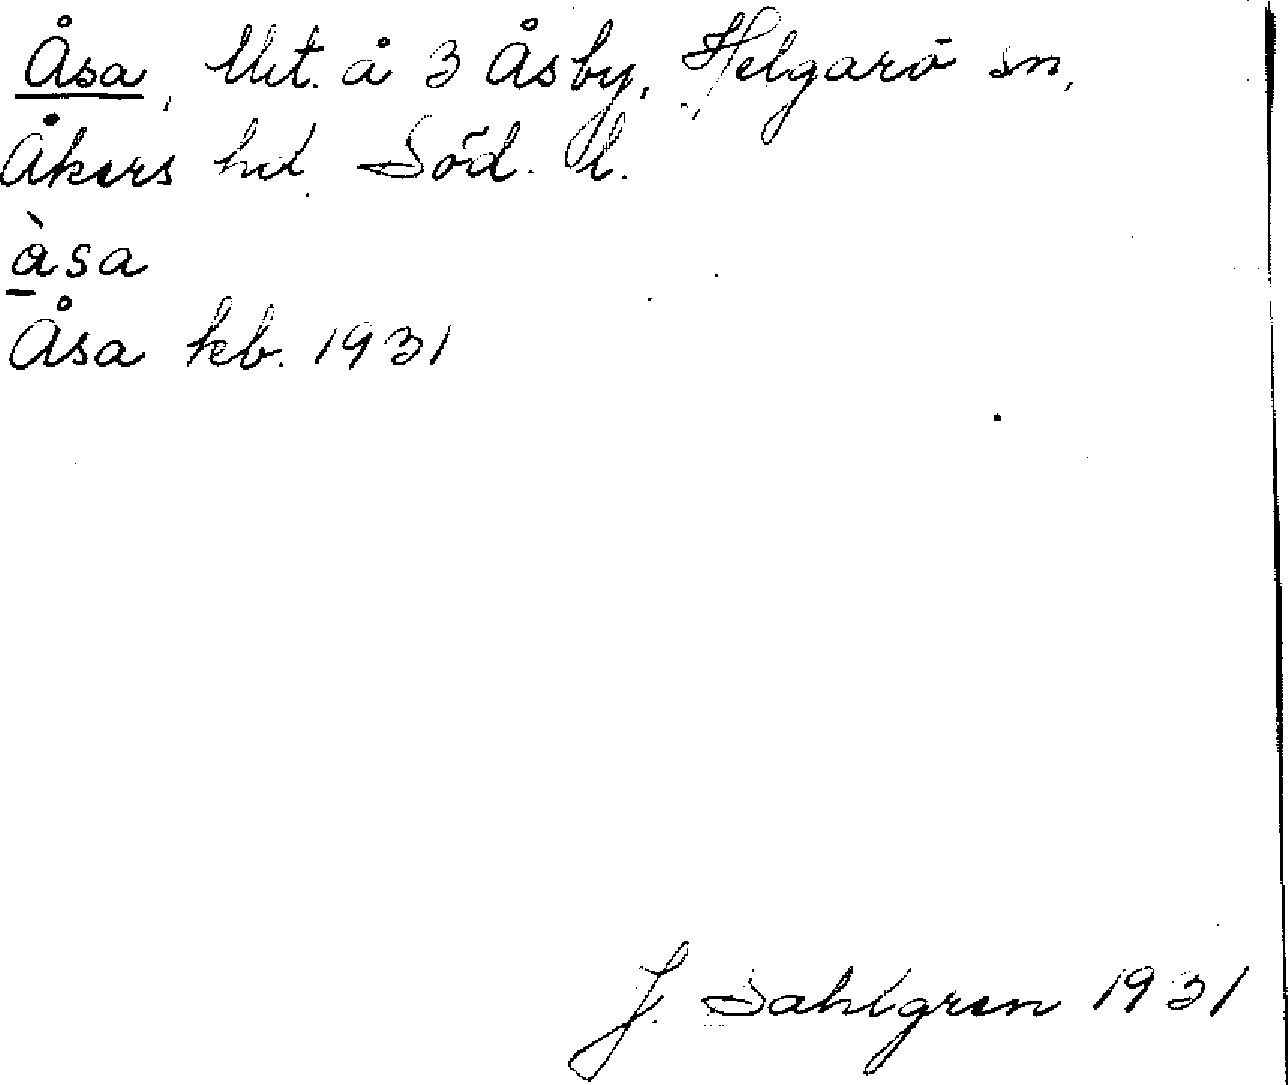 Åsa, Utit. å 3 Åsby, Helgarö sn,
Åkers hd. Söd. l.
àsa
Åsa kb. 1931
J. Sahlgren 1931